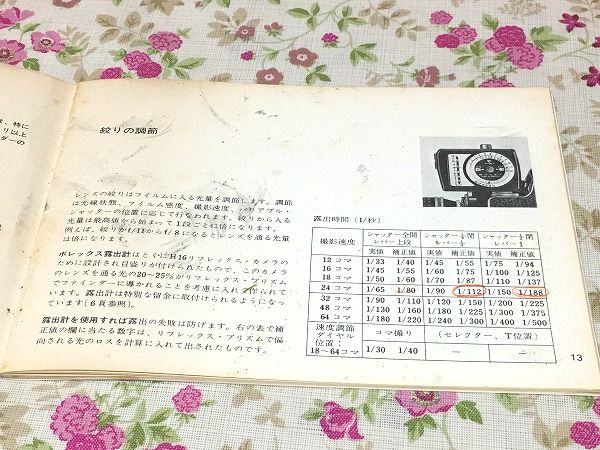 は、特に
リ以上
ダーの
絞りの調節
レンズの絞りはフイルムに入る光量を調節します。調節
は光線状態、フイルム感度、撮影速度、バリアブル・
シャッターの位置に応じて行なわれます。絞りから入る
光量は最高値から始まって1段ごとに倍になります。
例えば、絞りがf/11からf/8になるとレンズを通る光量
は倍になります。
ボレックス露出計はとくにH16リフレックス・カメラの
ために設計され目盛りが付けられたもので、このカメラ
のレンズを通る光の20−25%がリフレックス・プリズム
でファインダーに導かれることを考慮に入れて作られて
います。露出計は特別な留金に取付けられるようになっ
ています(6頁参照)。
露出計を使用すれば露出の失敗は防げます。右の表で補
正値の欄に当たる数字は、リフレックス・プリズムで偏
向される光のロスを計算に入れて出されたものです。
露出時間(1/秒)
撮影速度 シャッター全開レバー上段 シャッター½閉レバー½ シャッター¾閉レバー1
実値 補正値 実値 補正値 実値 補正値
12コマ 1/33 1/40 1/45 1/55 1/75 1/94
16コマ 1/45 1/55 1/60 1/75 1/100 1/125
18コマ 1/50 1/60 1/70 1/87 1/110 1/137
24コマ 1/65 1/80 1/90 1/112 1/150 1/188
32コマ 1/90 1/110 1/120 1/150 1/200 1/225
48コマ 1/130 1/160 1/180 1/225 1/300 1/375
64コマ 1/180 1/220 1/240 1/300 1/400 1/500
速度調節
ダイヤル
位置;
18〜64コマ
コマ撮り (セレクター、T位置)
1/30 1/40 — —
13